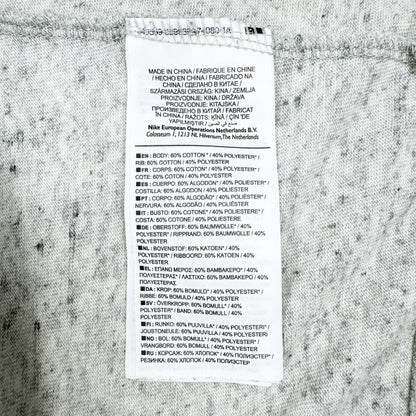 MADE IN CHINA / FABRIQUE EN CHINE
/ HECHO EN CHINA / FABRICADO NA
CHINA / СДЕЛАНО В КИТАЕ /
SZÁRMAZÁSI ORSZÁG: KÍNA / ZEMLJA
PROIZVODNJE: KINA / DRŽAVA
PROIZVODNJE: KITAJSKA /
ПРОИЗВЕДЕНО В КИТАЙ /
RAŽOTS: ĶĪNĀ / ÇİN'DE
YAPILMIŞTIR / صنع في الصين
Nike European Operations Netherlands B.V.
Colosseum 1, 1213 NL Hilversum, The Netherlands
EN: BODY: 60% COTTON* / 40% POLYESTER* /
RIB: 60% COTTON / 40% POLYESTER
FR: CORPS: 60% COTON* / 40% POLYESTER* /
COTE: 60% COTON / 40% POLYESTER
ES: CUERPO: 60% ALGODON* / 40% POLIESTER* /
COSTILLA: 60% ALGODON / 40% POLIESTER
PT: CORPO: 60% ALGODÃO* / 40% POLIÉSTER* /
NERVURA: 60% ALGODÃO / 40% POLIÉSTER
IT: BUSTO: 60% COTONE* / 40% POLIESTERE* /
COSTE: 60% COTONE / 40% POLIESTERE
DE: OBERSTOFF: 60% BAUMWOLLE* / 40%
POLYESTER* / RIPPBUND: 60% BAUMWOLLE / 40%
POLYESTER
NL: BOVENSTOF: 60% KATOEN* / 40%
POLYESTER* / RIBBOORD: 60% KATOEN / 40%
POLYESTER
EL: ΕΠΑΝΩ ΜΕΡΟΣ: 60% ΒΑΜΒΑΚΕΡΟ* / 40%
ΠΟΛΥΕΣΤΕΡΑΣ* / ΛΑΣΤΙΧΟ: 60% ΒΑΜΒΑΚΕΡΟ / 40%
ΠΟΛΥΕΣΤΕΡΑΣ
DA: KROP: 60% BOMULD* / 40% POLYESTER* /
RIBBE: 60% BOMULD / 40% POLYESTER
SV: ÖVERKROPP: 60% BOMULL* / 40%
POLYESTER* / BAND: 60% BOMULL / 40%
POLYESTER
FI: RUNKO: 60% PUUVILLA* / 40% POLYESTERI* /
JOUSTONEULE: 60% PUUVILLA / 40% POLYESTERI
NO: BOL: 60% BOMULL* / 40% POLYESTER* /
VRANGBORD: 60% BOMULL / 40% POLYESTER
RU: КОРСАЖ: 60% ХЛОПОК* / 40% ПОЛИЭСТЕР* /
РЕЗИНКА: 60% ХЛОПОК / 40% ПОЛИЭСТЕР